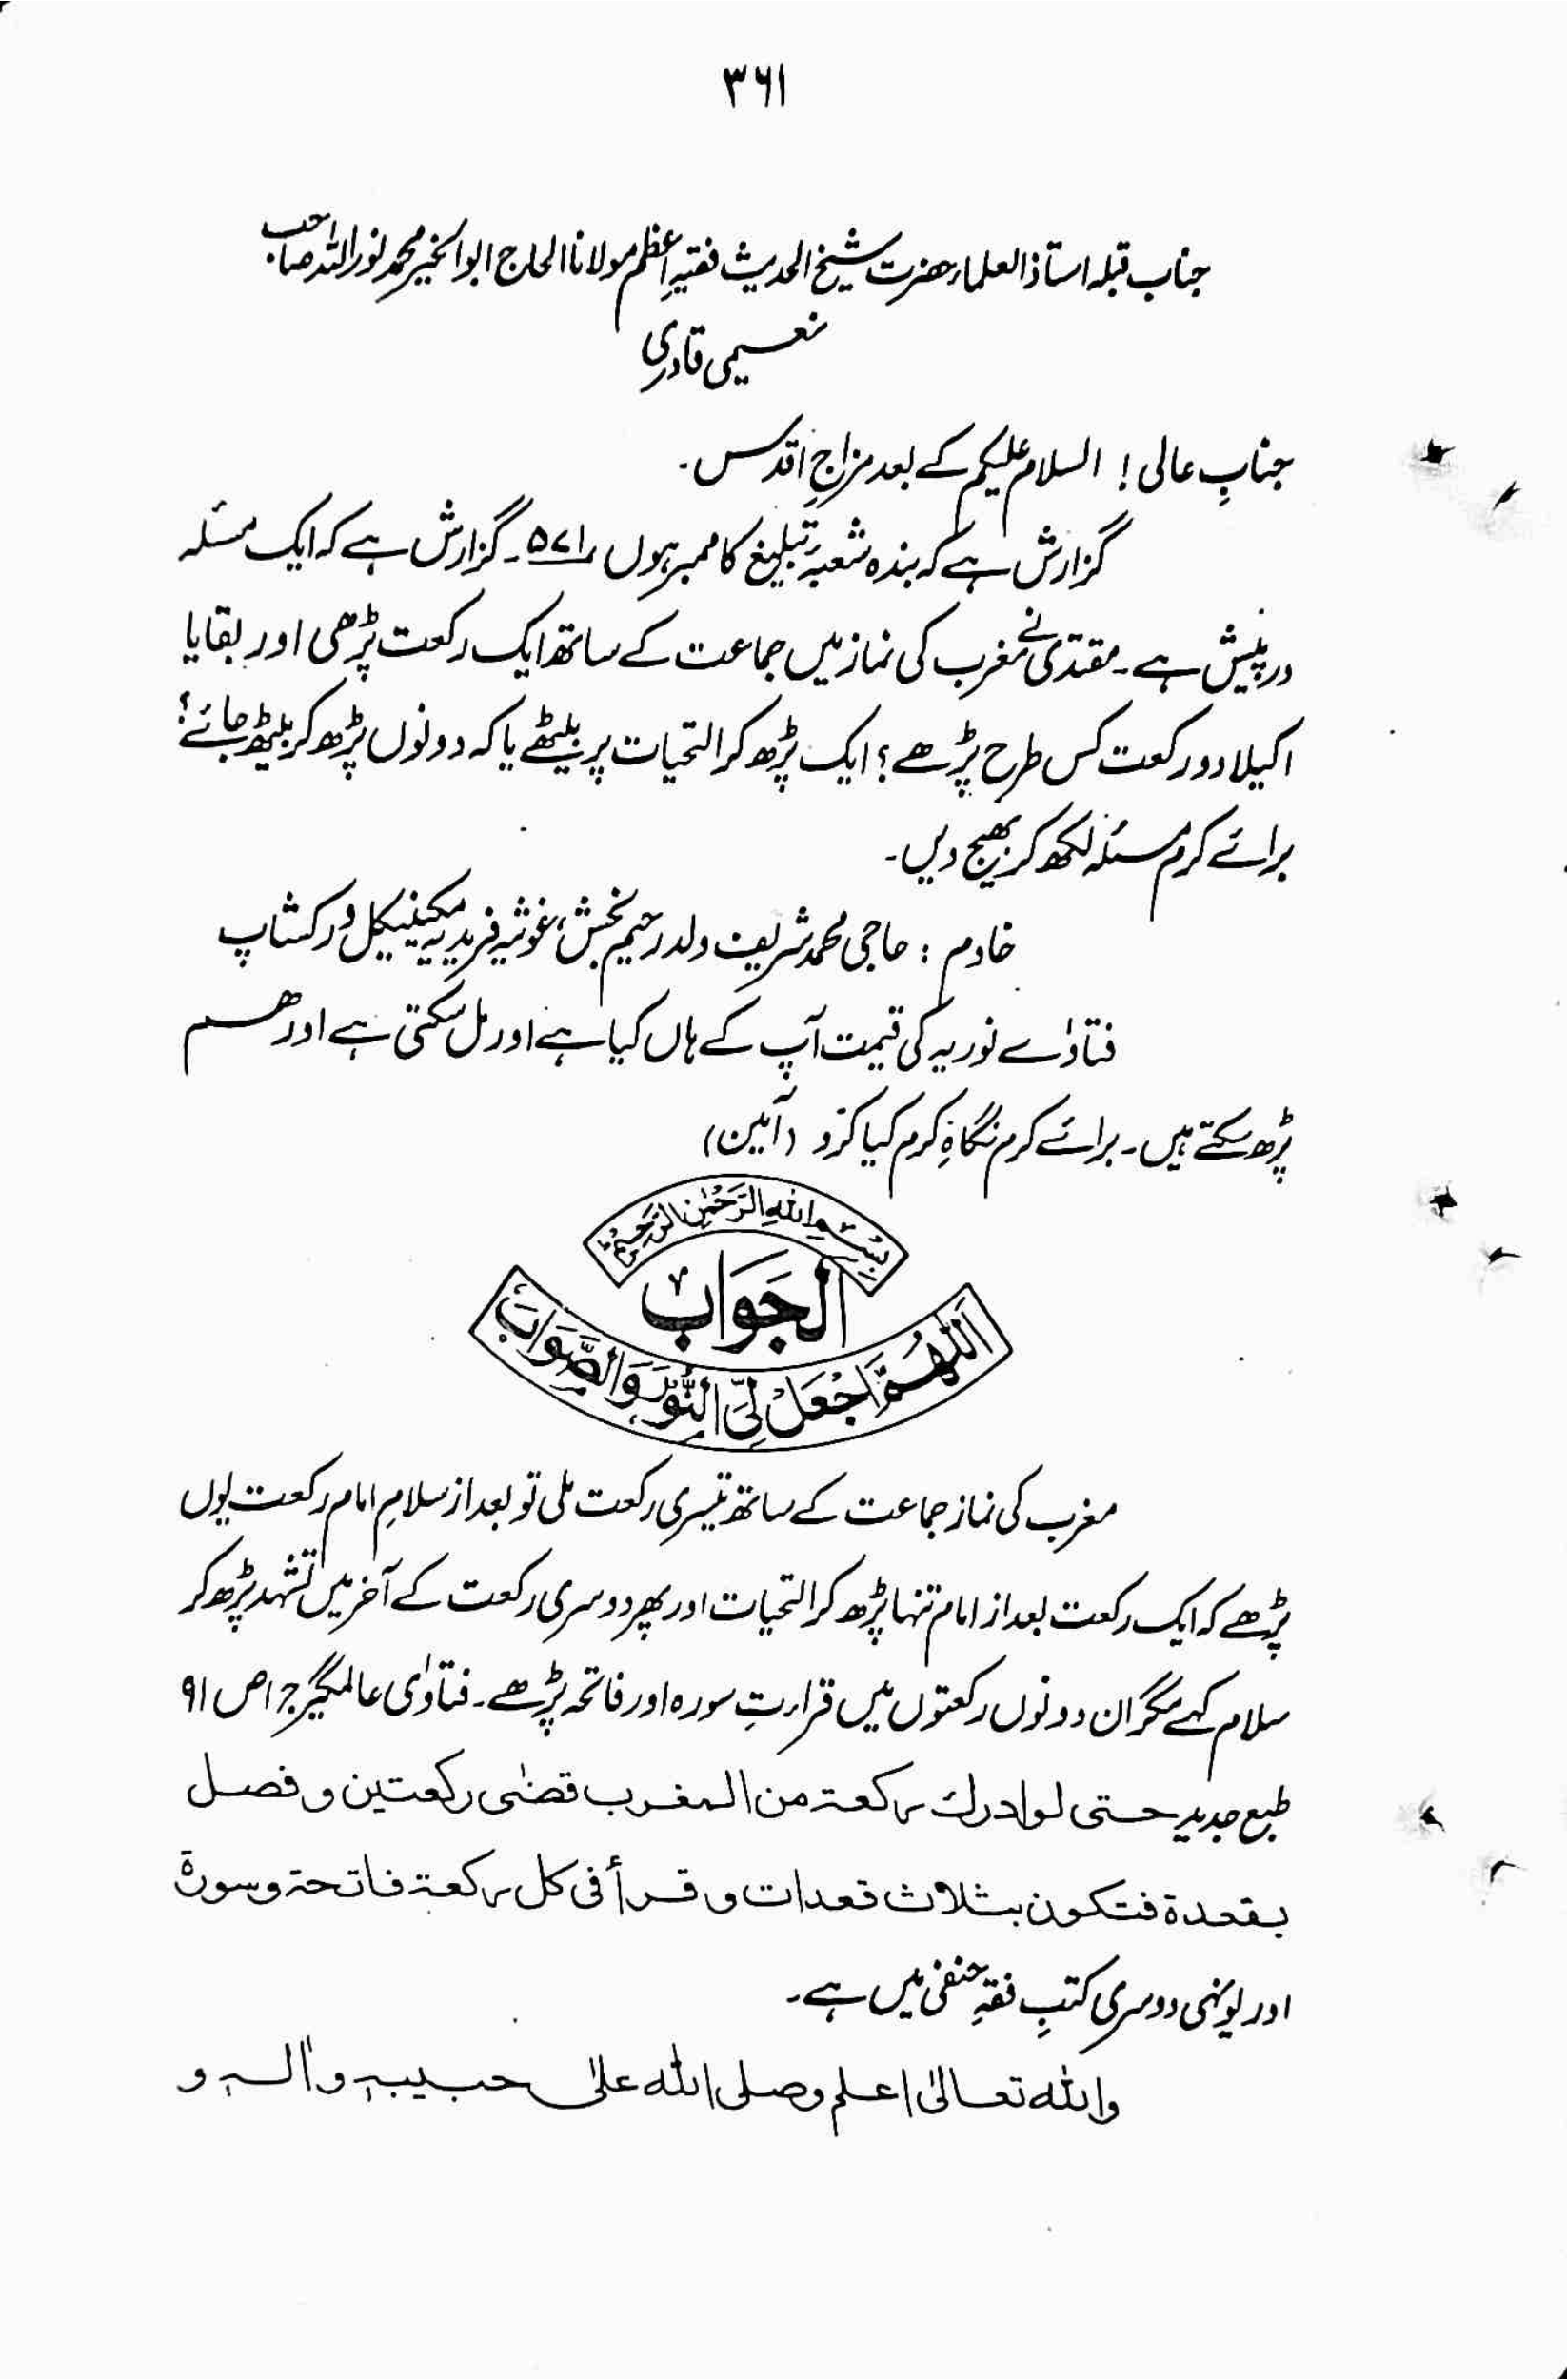 ۳۶۱
جناب قبلہ استاذ العلماء حضرت شیخ الحدیث فقیہِ اعظم مولانا الحاج ابو الخیر محمد نور اللہ صاحب
نعیمی قادری
جنابِ عالی! السلام علیکم کے بعد مزاجِ اقدس۔
گزارش ہے کہ بندہ شعبہ تبلیغ کا ممبر ہوں ۵۷۱۔ گزارش ہے کہ ایک مسئلہ
درپیش ہے۔ مقتدی نے مغرب کی نماز میں جماعت کے ساتھ ایک رکعت پڑھی اور بقایا
اکیلا دو رکعت کس طرح پڑھے؟ ایک پڑھ کر التحیات پر بیٹھے یا کہ دونوں پڑھ کر بیٹھ جائے؟
برائے کرم مسئلہ لکھ کر بھیج دیں۔
خادم: حاجی محمد شریف ولد رحیم بخش، غوثیہ فریدیہ مکینیکل ورکشاپ
فتاوٰے نوریہ کی قیمت آپ کے ہاں کیا ہے اور مل سکتی ہے اور ہم
پڑھ سکتے ہیں۔ برائے کرم نگاہِ کرم کیا کرو (آمین)
بِسْمِ اللهِ الرَّحْمٰنِ الرَّحِيْمِ
الجَوَاب
اَللّٰهُمَّ اجْعَلْ لِيَ النُّوْرَ وَالصَّوَابَ
مغرب کی نماز جماعت کے ساتھ تیسری رکعت ملی تو بعد از سلامِ امام رکعت یوں
پڑھے کہ ایک رکعت بعد از امام تنہا پڑھ کر التحیات اور پھر دوسری رکعت کے آخر میں تشہد پڑھ کر
سلام کہے مگر ان دونوں رکعتوں میں قراءتِ سورہ اور فاتحہ پڑھے۔ فتاوٰی عالمگیر ج۱ ص ۹۱
طبع جدید حتی لو ادرك ركعة من المغرب قضٰی ركعتين و فصل
بقعدة فتكون بثلاث قعدات و قرأ فی كل ركعة فاتحة و سورة
اور یونہی دوسری کتبِ فقہِ حنفی میں ہے۔
والله تعالیٰ اعلم وصلی الله علیٰ حبیبہٖ واٰلہٖ و